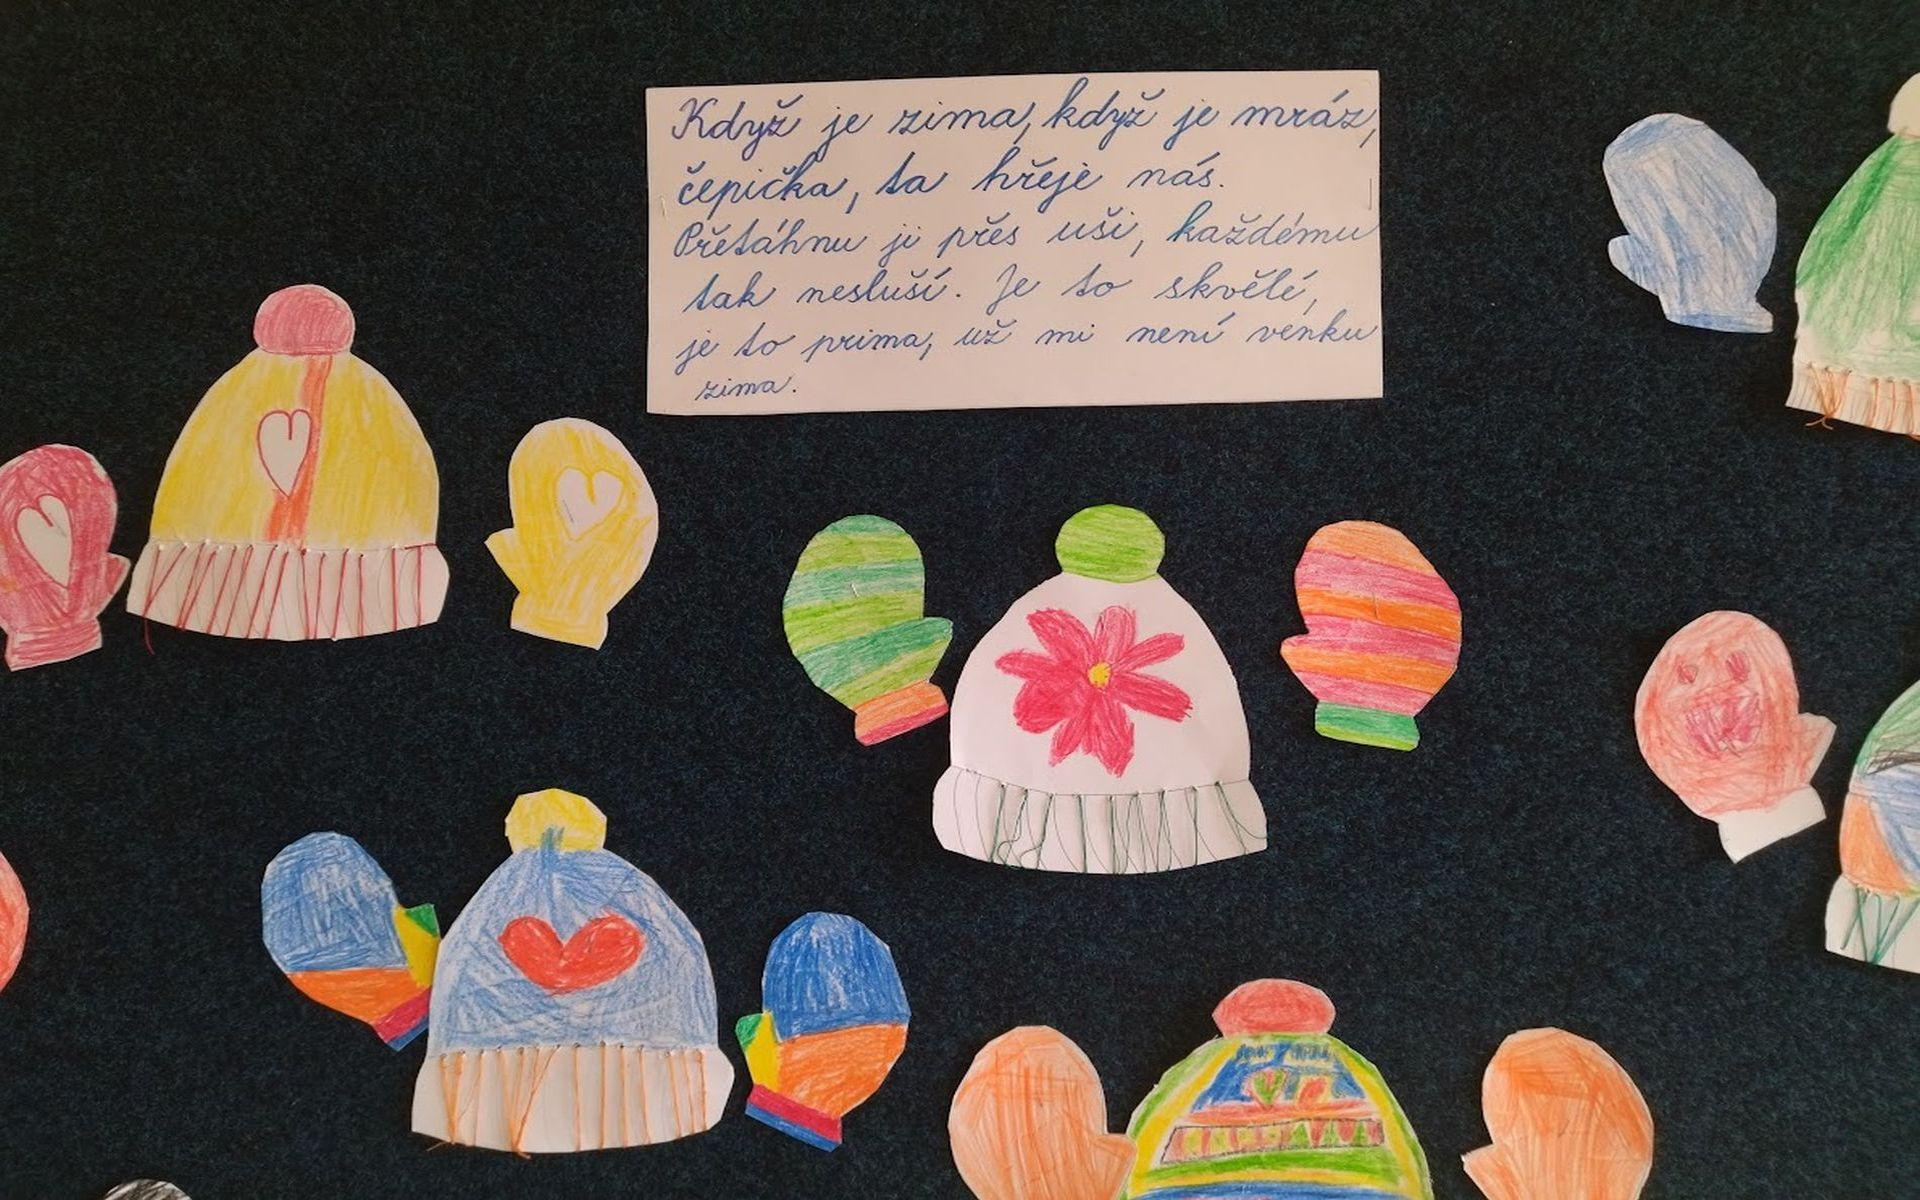 Když je zima, když je mráz,
čepička, ta hřeje nás.
Přetáhnu ji přes uši, každému
tak nesluší. Je to skvělé,
je to prima, už mi není venku
zima.